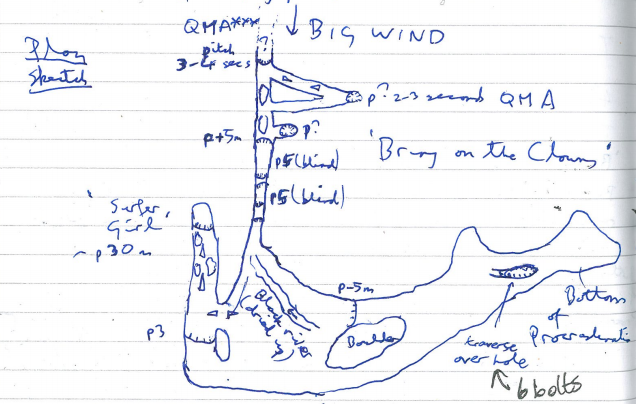 QMA***
BIG WIND
Plan
Sketch
pitch
3-4 secs
?
p? 2-3 second QMA
p+5m
p?
'Bring on the Clowns'
p5 (blind)
p5 (blind)
'Surfer
Girl'
~p30m
p-5m
Black river
(dried up)
Boulder
p3
Bottom
of
traverse
over hole
6 bolts